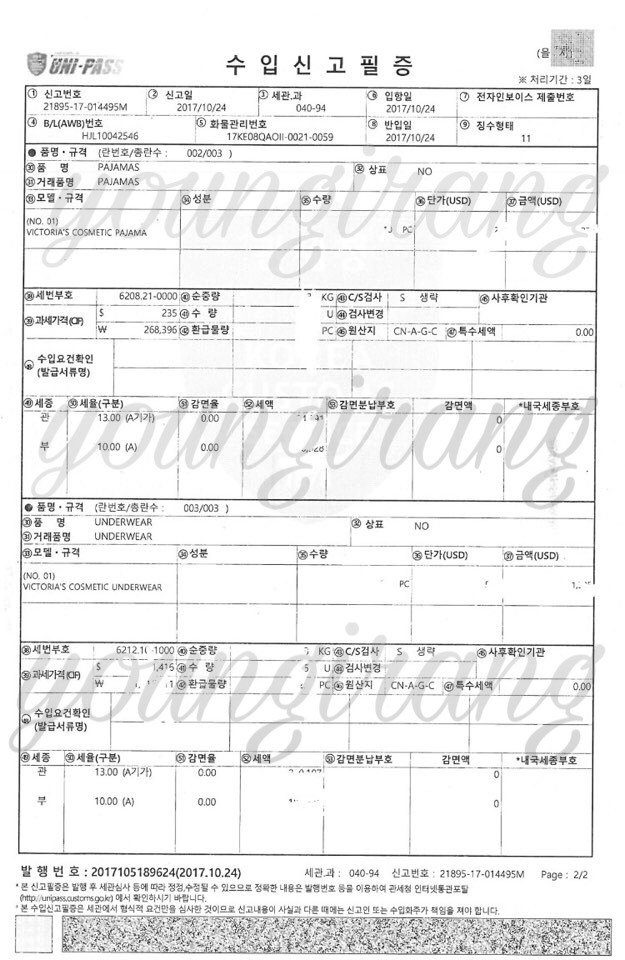 UNI-PASS
수 입 신 고 필 증
(을
※ 처리기간 : 3일
① 신고번호 ② 신고일 ③ 세관.과 ⑥ 입항일 ⑦ 전자인보이스 제출번호
21895-17-014495M 2017/10/24 040-94 2017/10/24
④ B/L(AWB)번호 ⑤ 화물관리번호 ⑧ 반입일 ⑨ 징수형태
HJL10042546 17KE08QAOII-0021-0059 2017/10/24 11
● 품명·규격 (란번호/총란수 : 002/003 )
㉚ 품 명 PAJAMAS ㉜ 상표 NO
㉛ 거래품명 PAJAMAS
㉝ 모델·규격 ㉞ 성분 ㉟ 수량 ㊱ 단가(USD) ㊲ 금액(USD)
(NO. 01)
VICTORIA'S COSMETIC PAJAMA PC
㊳ 세번부호 6208.21-0000 ㊵ 순중량 KG ㊸ C/S검사 S 생략 ㊺ 사후확인기관
㊴ 과세가격(CIF) $ 235 ㊶ 수 량 U ㊹ 검사변경
₩ 268,396 ㊷ 환급물량 PC ㊻ 원산지 CN-A-G-C ㊼ 특수세액 0.00
㊽ 수입요건확인
(발급서류명)
㊾ 세종 ㊿ 세율(구분) 감면율 세액 감면분납부호 감면액 *내국세종부호
관 13.00 (A기가) 0.00 0
부 10.00 (A) 0.00 0
● 품명·규격 (란번호/총란수 : 003/003 )
㉚ 품 명 UNDERWEAR ㉜ 상표 NO
㉛ 거래품명 UNDERWEAR
㉝ 모델·규격 ㉞ 성분 ㉟ 수량 ㊱ 단가(USD) ㊲ 금액(USD)
(NO. 01)
VICTORIA'S COSMETIC UNDERWEAR PC
㊳ 세번부호 ㊵ 순중량 KG ㊸ C/S검사 S 생략 ㊺ 사후확인기관
㊴ 과세가격(CIF) $ 1,415 ㊶ 수 량 U ㊹ 검사변경
₩ ㊷ 환급물량 PC ㊻ 원산지 CN-A-G-C ㊼ 특수세액 0.00
㊽ 수입요건확인
(발급서류명)
㊾ 세종 ㊿ 세율(구분) 감면율 세액 감면분납부호 감면액 *내국세종부호
관 13.00 (A기가) 0.00 0
부 10.00 (A) 0.00 0
youngirang
youngirang
youngirang
youngirang
발 행 번 호 : 2017105189624(2017.10.24) 세관.과 : 040-94 신고번호 : 21895-17-014495M Page : 2/2
* 본 신고필증은 발행 후 세관심사 등에 따라 정정,수정될 수 있으므로 정확한 내용은 발행번호 등을 이용하여 관세청 인터넷통관포탈
(http://unipass.customs.go.kr) 에서 확인하시기 바랍니다.
* 본 수입신고필증은 세관에서 형식적 요건만을 심사한 것이므로 신고내용이 사실과 다른 때에는 신고인 또는 수입화주가 책임을 져야 합니다.